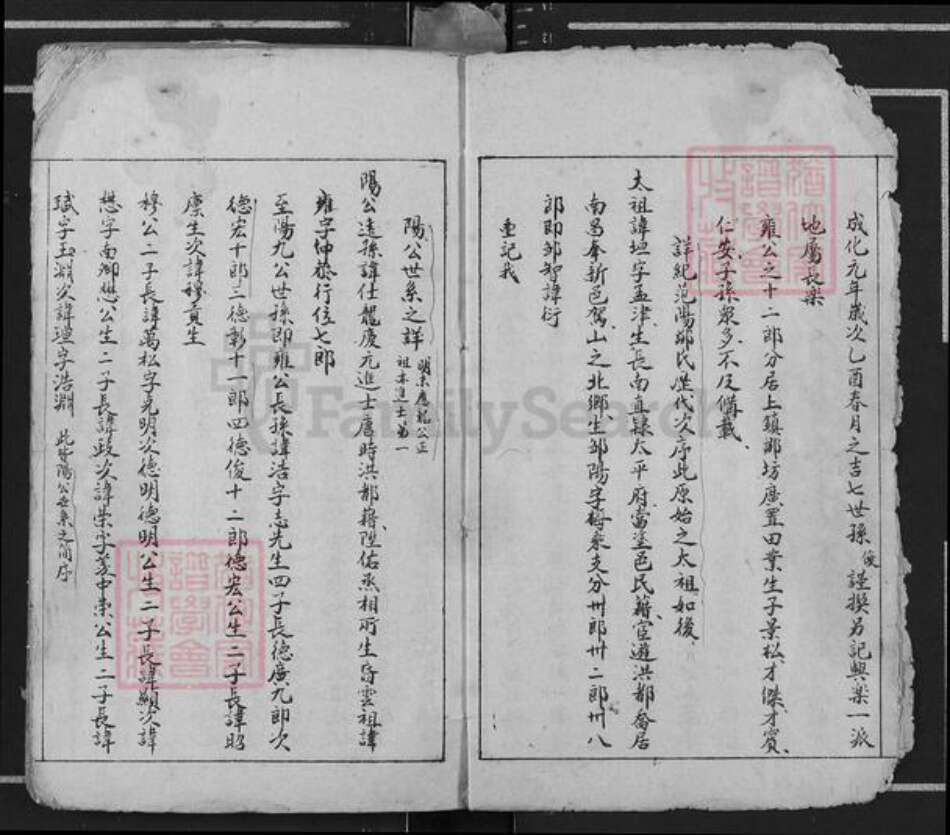 成化元年歲次乙酉春月之吉七世孫俊謹撰另記興楽一派
地屬長楽
雍公之十二郎分居上鎮鄒坊廣置田業生子景松才傑才賓
仁安子孫衆多不及備載
詳紀范陽鄒氏歴代次序此原始之太祖如後
太祖諱垣字孟津生長南直隸太平府當塗邑民籍宦遊洪都喬居
南昌奉新邑駕山之北鄉生鄒陽字梅來支分卅郎卅二郎卅八
郎即鄒智諱衍
重記我
陽公世系之詳
明宗應龍公正
祖本進士第一
陽公遠孫諱仕龍慶元進士唐時洪都籍陞佑烝相所生昏雲祖諱
雍字仲恭行位七郎
至陽九公世孫即雍公長孫諱浩字志先生四子長德廣九郎次
德宏十郎三德彰十一郎四德俊十二郎德宏公生二子長諱昭
廪生次諱穆貢生
穆公二子長諱萬松字克明次德明德明公生二子長諱顯次諱
懋字南卿懋公生二子長諱政次諱荣字受中荣公生二子長諱
珷字玉淵次諱理字浩淵
此紫陽公世系之簡序
FamilySearch